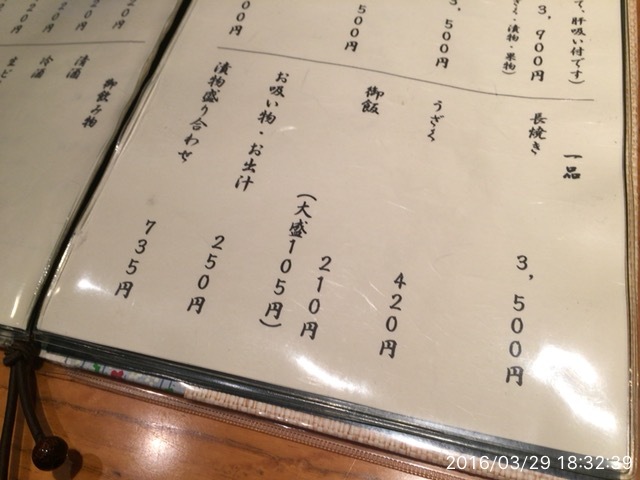 て、肝吸い付です)
3,900円
漬物・果物)
3,500円
500円
00円
一品
長焼き 3,500円
うざく 420円
御飯 210円
(大盛105円)
お吸い物・お出汁 250円
漬物盛り合わせ 735円
御飲み物
清酒
冷酒
2016/03/29 18:32:39